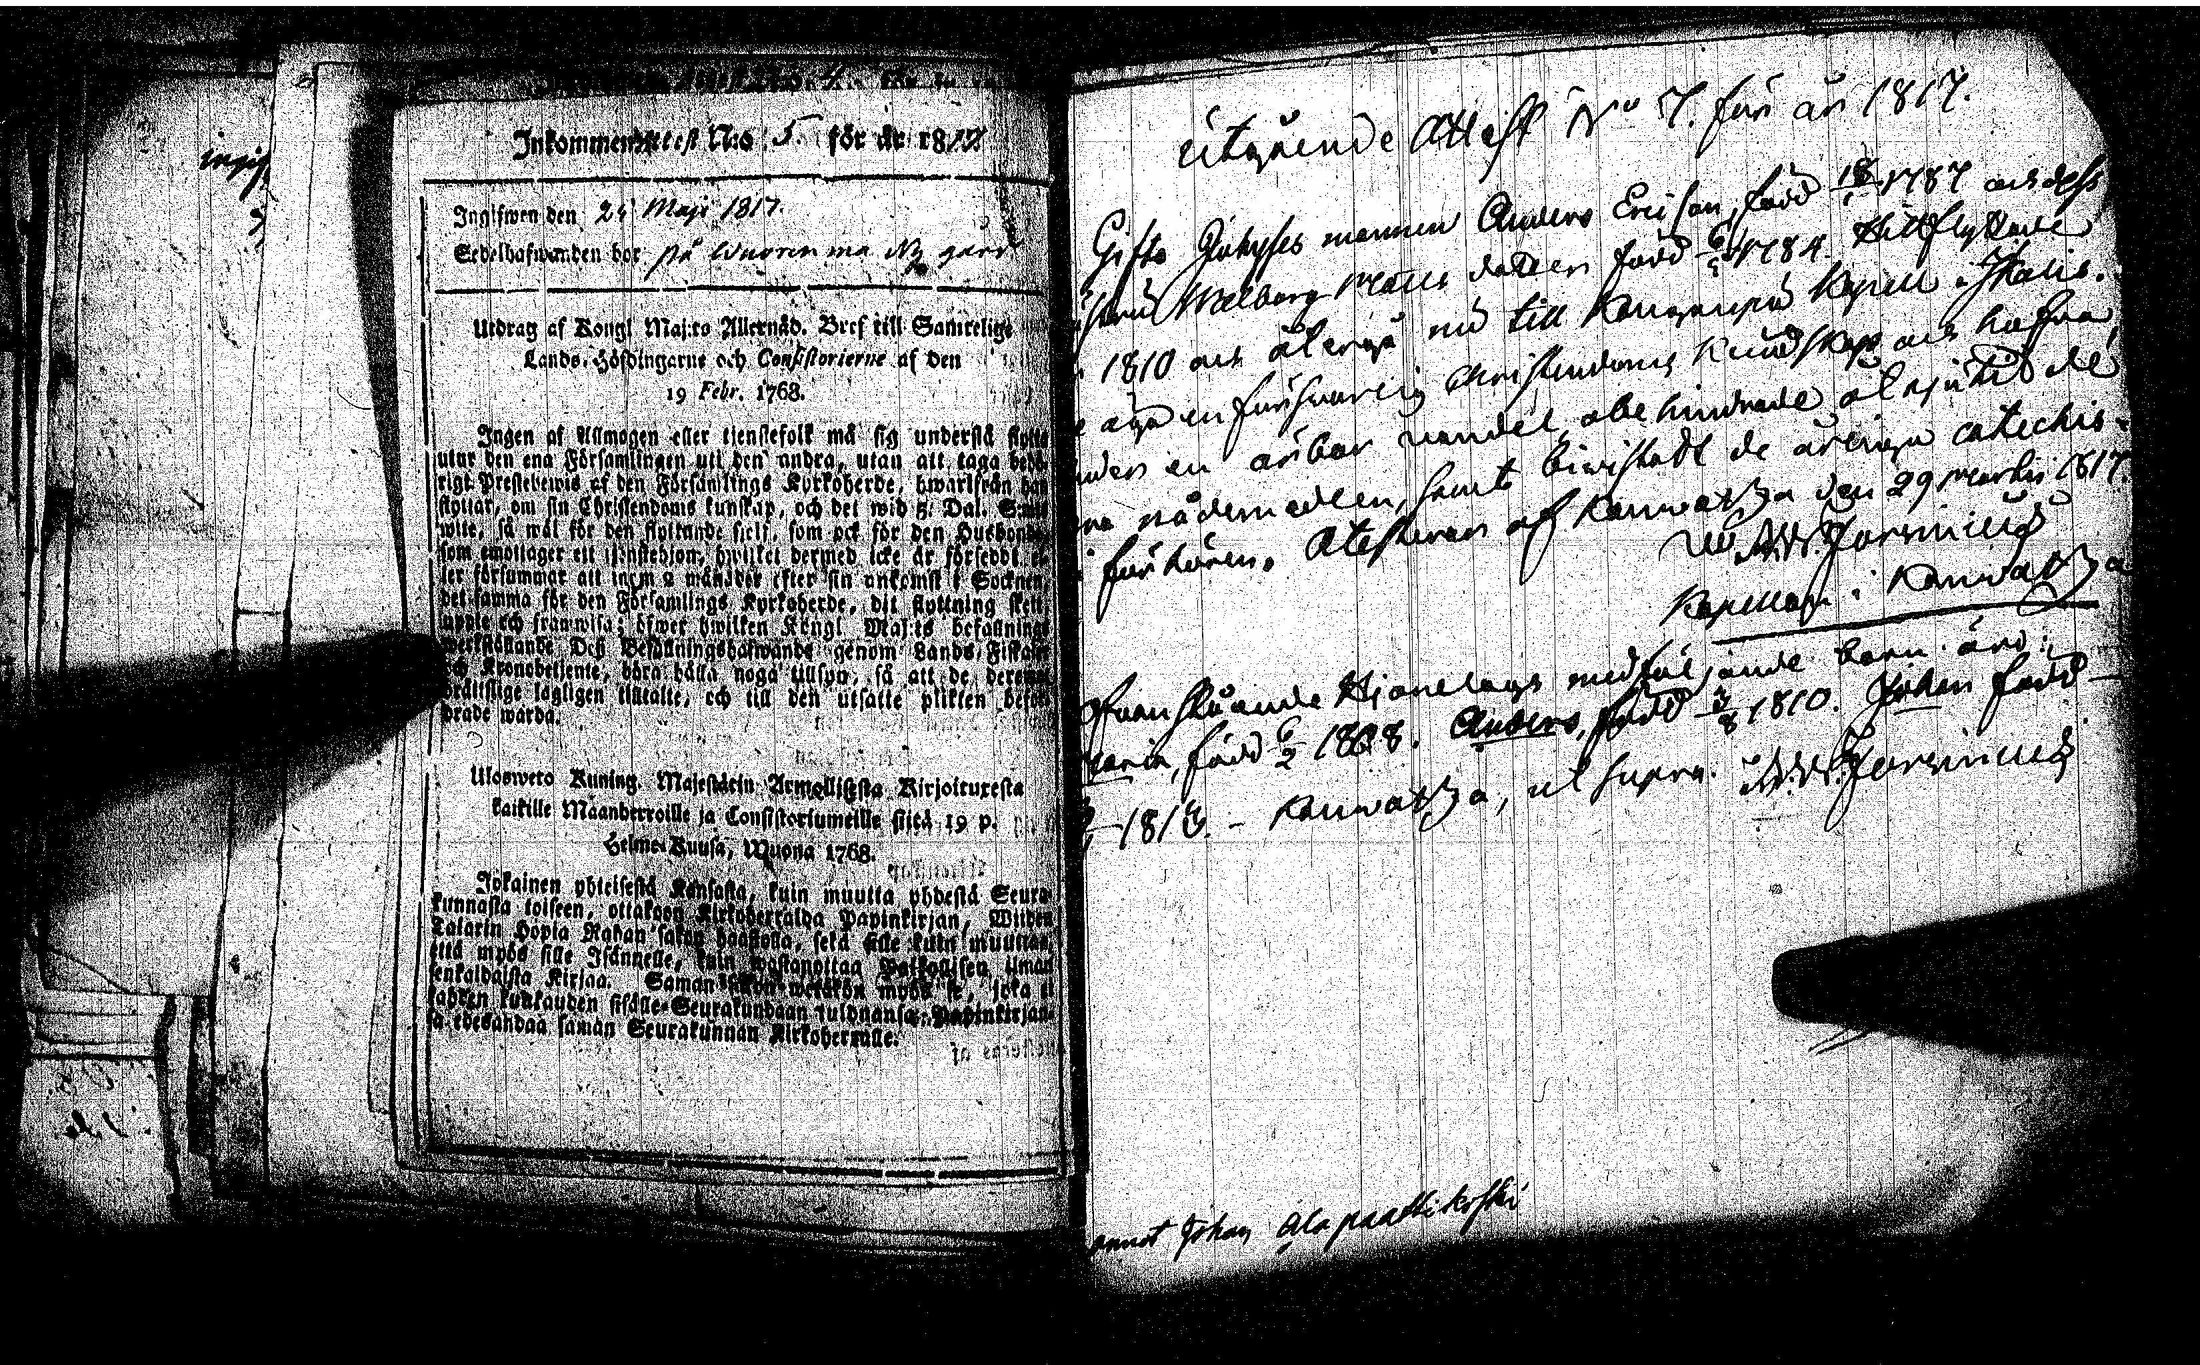 Inkommen Attest N:o 5. för år 1817
Ingifwen den 25 Maji 1817.
Sedelhafwanden bor på Wuorenma Ny gård
Utdrag af Kongl Maj:ts Allernåd. Bref till Samtelige
Lands-Höfdingarne och Consistorierne af den
19 Febr. 1768.
Ingen af Allmogen eller tjenstefolk må sig understå flytta
utur den ena Församlingen uti den andra, utan att taga behö-
rigt Prestebewis af den Församlings Kyrkoherde, hwarifrån han
flyttar, om sin Christendoms kunskap, och det wid 5. Dal. S:mts
wite, så wäl för den flyttande sielf, som ock för den Husbonde,
som emottager ett tjenstehion, hwilket dermed icke är försedt el-
ler försummar att inom 2 månader efter sin ankomst i Socknen,
det samma för den Församlings Kyrkoherde, dit flyttning skett,
upte och framwisa; öfwer hwilken Kongl Maj:ts befallnings
werkställande Dess Befallningshafwande genom Lands Fiskaler
och Kronobetjente, böra hålla noga tillsyn, så att de, deremot
brättslige lagligen tilltalte, och till den utsatte plikten befor-
drade warda.
Ulosweto Kuning. Majestätin Armollisesta Kirjoituxesta
kaikille Maanherroille ja Consistoriumeille siitä 19 p.
Helme-Kuusa, Wuona 1768.
Jokainen yhteisestä Kansasta, kuin muutta yhdestä Seura-
kunnasta toiseen, ottakoon Kirkoherralda Papinkirjan, Wiiden
Talarin Hopia Rahan sakon haastolla, sekä sille kuin muuttaa,
että myös sille Isännelle, kuin wastanottaa Palkollisen ilman
senkaldaista Kirjaa. Saman sakon wetäkön myös se, joka ei
kahden kuukauden sisälle Seurakundaan tuldnansa, Papinkirjan-
sa edesandaa saman Seurakunnan Kirkoherralle.
Utgående Attest No 7. för år 1817.
Gifte Inhyses mannen Anders Ericson, född 18/ 1787 och dess
hustru Walborg Matts dotter född 6/ 1784. Hitflyttade
1810 och återgå nu till Kangaspä Kapell i Ikalis.
äga en försvarlig Christendoms Kundskap och hafva
en ärbar vandel, obehindrade åtnjutit de
nådemedlen, samt biwistadt de årliga catechis-
förhören. Attesteras af Kauwatza den 29 martii 1817.
Forsinius
Kapellan i Kauwatza
Ofvanstående Hjonelags medföljande barn äro:
Maria, född 6/2 1808. Anders, född 3/8 1810. Johan född
1813. – Kauwatza, ut supra. Forsinius
Johan Alapaattikoski